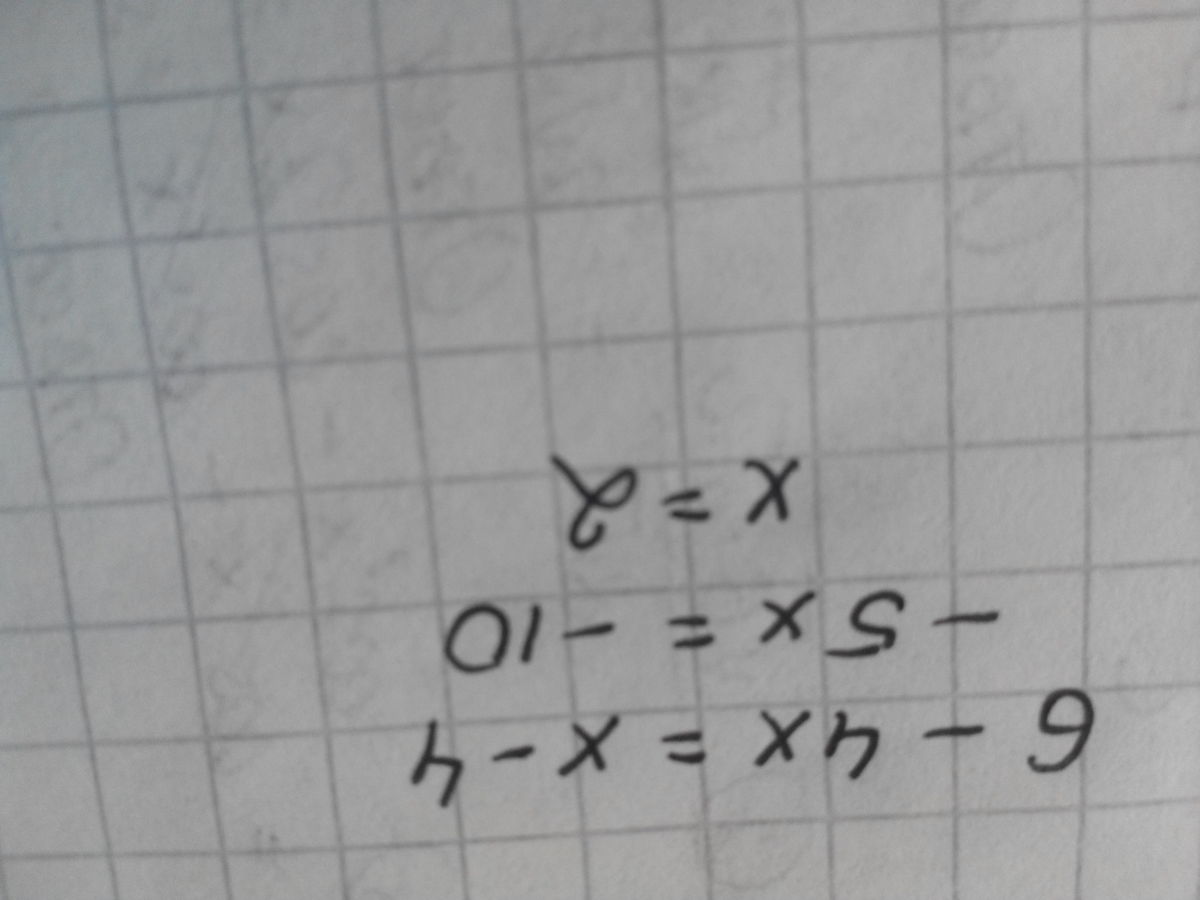 6 - 4x = x - 4
- 5x = - 10
x = 2